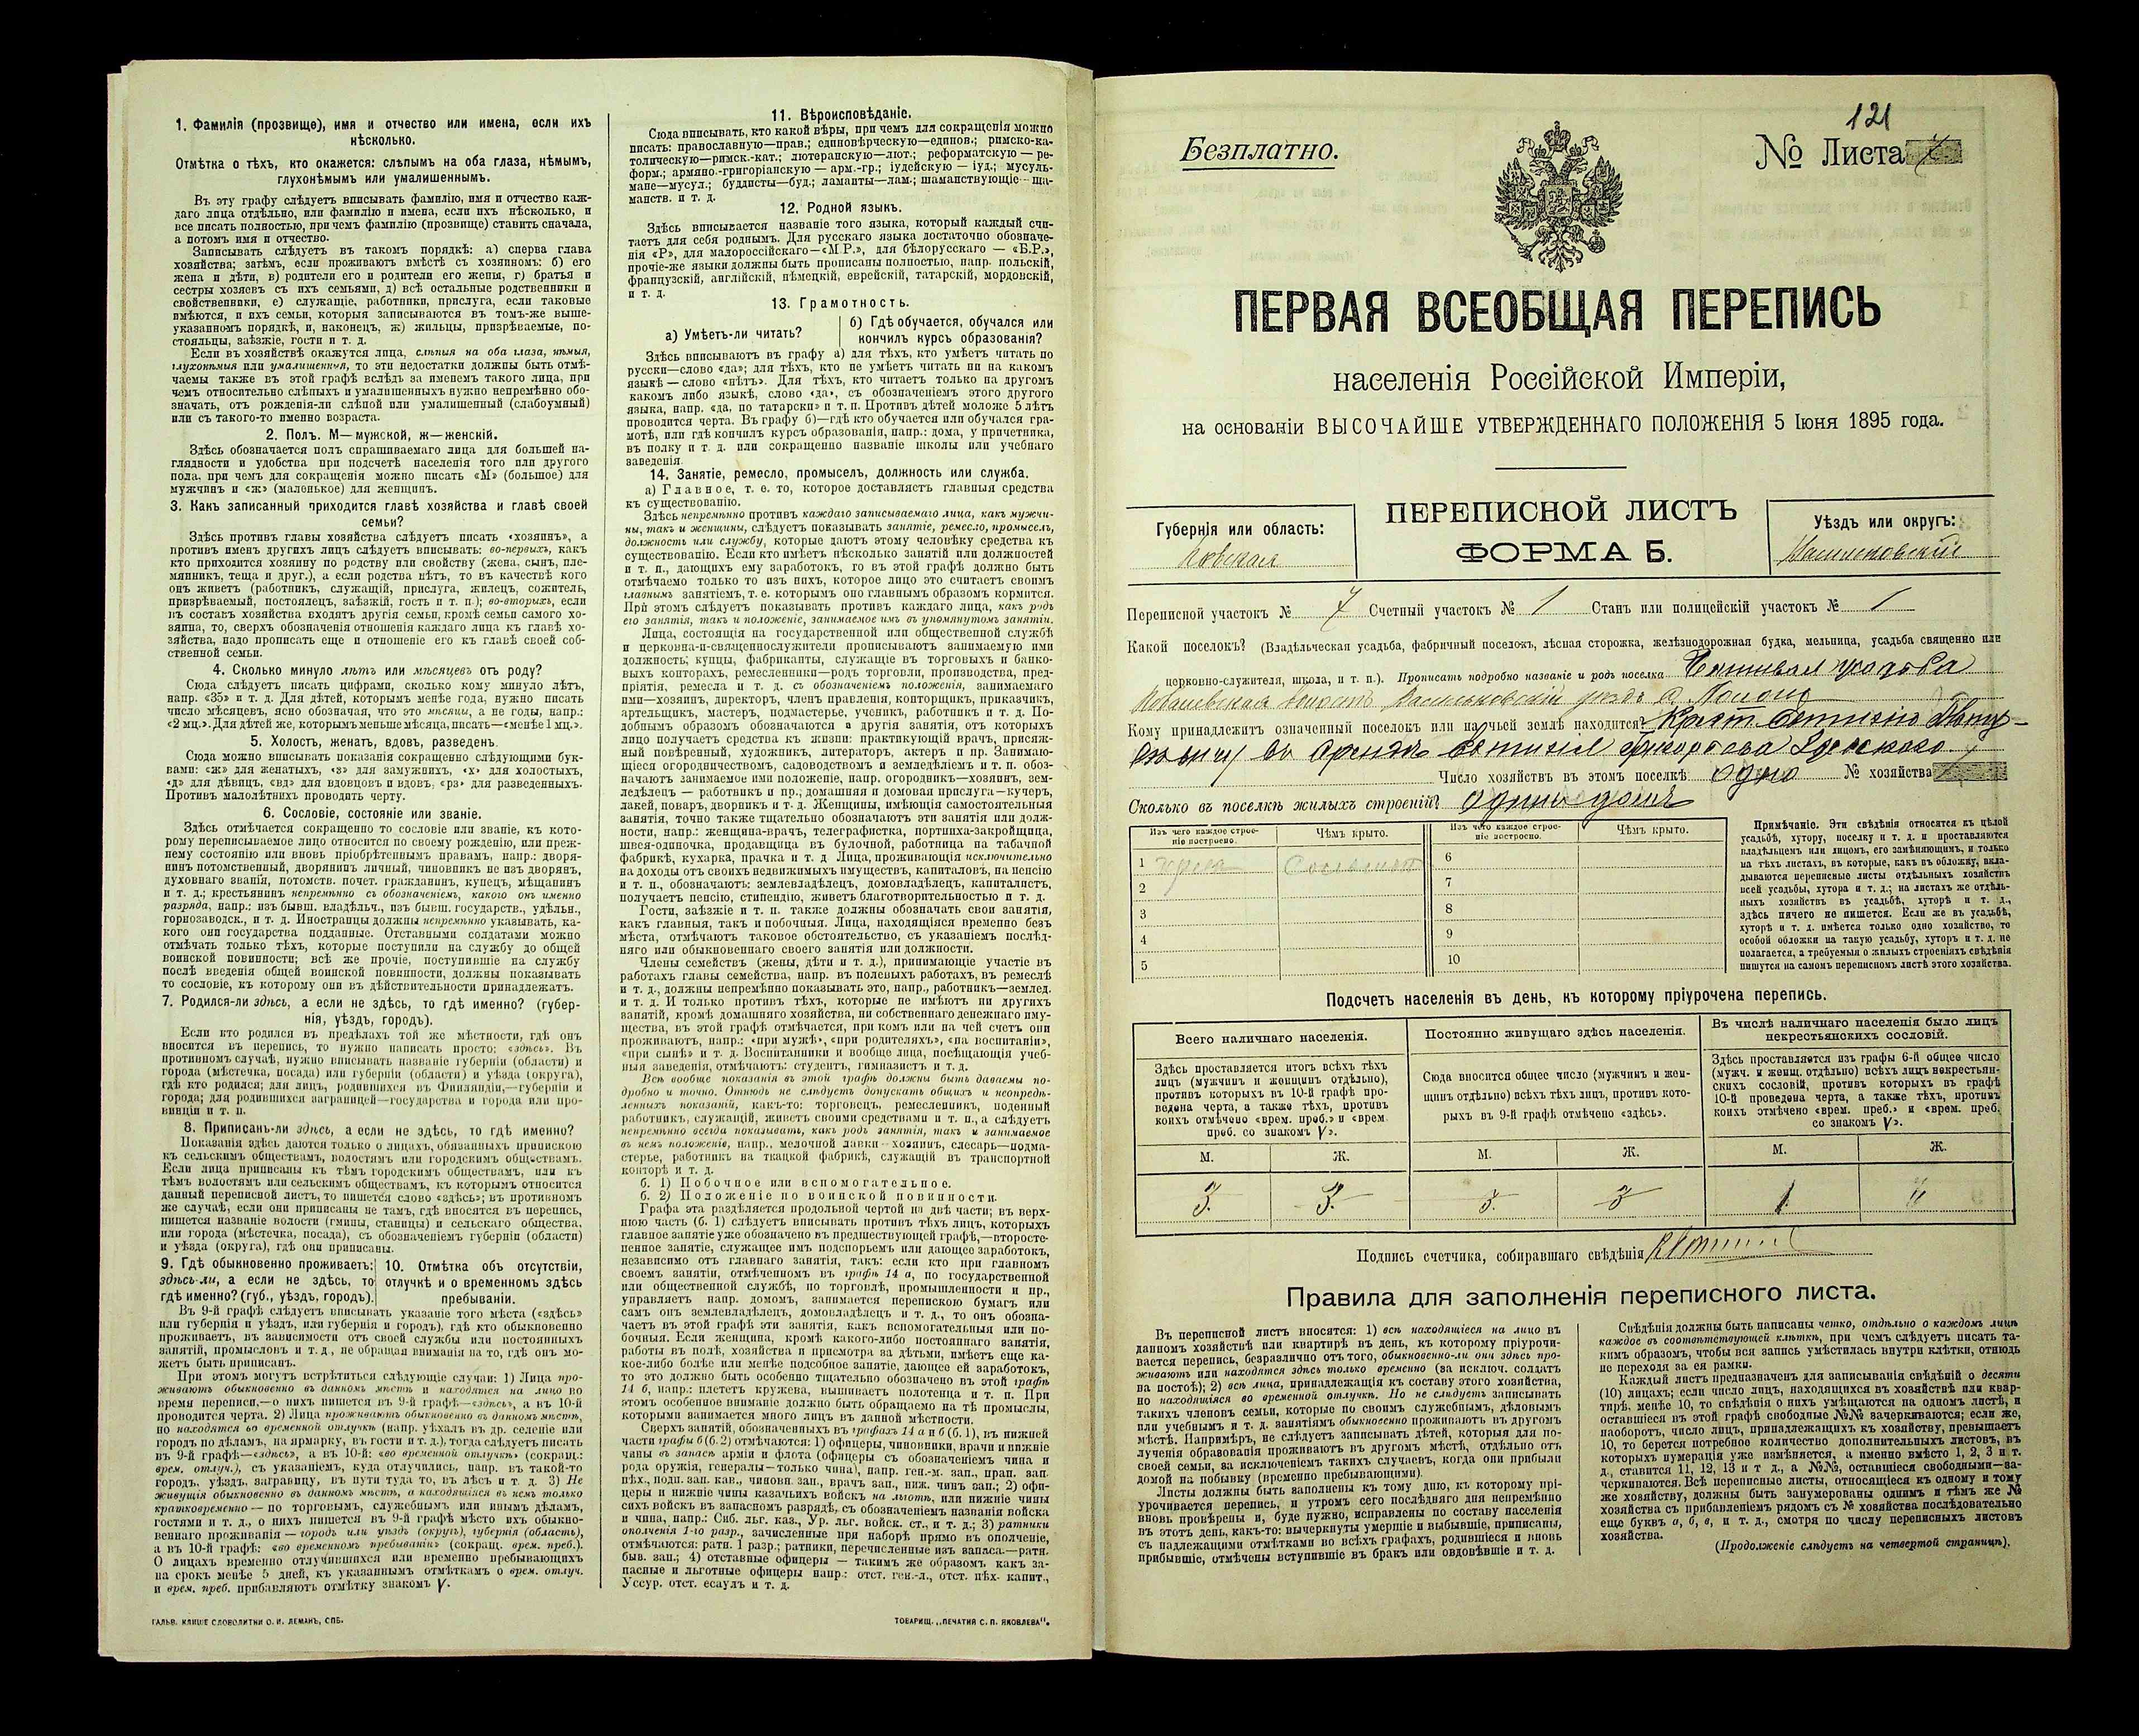 1. Фамилія (прозвище), имя и отчество или имена, если ихъ
нѣсколько.
Отмѣтка о тѣхъ, кто окажется: слѣпымъ на оба глаза, нѣмымъ,
глухонѣмымъ или умалишеннымъ.
Въ эту графу слѣдуетъ вписывать фамилію, имя и отчество каж-
даго лица отдѣльно, или фамилію и имена, если ихъ нѣсколько, и
все писать полностью, при чемъ фамилію (прозвище) ставить сначала,
а потомъ имя и отчество.
Записывать слѣдуетъ въ такомъ порядкѣ: а) сперва глава
хозяйства; затѣмъ, если проживаютъ вмѣстѣ съ хозяиномъ: б) его
жена и дѣти, в) родители его и родители его жены, г) братья и
сестры хозяевъ съ ихъ семьями, д) всѣ остальные родственники и
свойственники, е) служащіе, работники, прислуга, если таковые
имѣются, и ихъ семьи, которыя записываются въ томъ-же выше-
указанномъ порядкѣ, и, наконецъ, ж) жильцы, призрѣваемые, по-
стояльцы, заѣзжіе, гости и т. д.
Если въ хозяйствѣ окажутся лица, слѣпыя на оба глаза, нѣмыя,
глухонѣмыя или умалишенныя, то эти недостатки должны быть отмѣ-
чаемы также въ этой графѣ вслѣдъ за именемъ такого лица, при
чемъ относительно слѣпыхъ и умалишенныхъ нужно непремѣнно обо-
значать, отъ рожденія-ли слѣпой или умалишенный (слабоумный)
или съ такого-то именно возраста.
2. Полъ. М—мужской, ж—женскій.
Здѣсь обозначается полъ спрашиваемаго лица для большей на-
глядности и удобства при подсчетѣ населенія того или другого
пола, при чемъ для сокращенія можно писать «М» (большое) для
мужчинъ и «ж» (маленькое) для женщинъ.
3. Какъ записанный приходится главѣ хозяйства и главѣ своей
семьи?
Здѣсь противъ главы хозяйства слѣдуетъ писать «хозяинъ», а
противъ именъ другихъ лицъ слѣдуетъ вписывать: во-первыхъ, какъ
кто приходится хозяину по родству или свойству (жена, сынъ, пле-
мянникъ, теща и друг.), а если родства нѣтъ, то въ качествѣ кого
онъ живетъ (работникъ, служащій, прислуга, жилецъ, сожитель,
призрѣваемый, постоялецъ, заѣзжій, гость и т. п.); во-вторыхъ, если
въ составъ хозяйства входятъ другія семьи, кромѣ семьи самого хо-
зяина, то, сверхъ обозначенія отношенія каждаго лица къ главѣ хо-
зяйства, надо прописать еще и отношеніе его къ главѣ своей соб-
ственной семьи.
4. Сколько минуло лѣтъ или мѣсяцевъ отъ роду?
Сюда слѣдуетъ писать цифрами, сколько кому минуло лѣтъ,
напр. «35» и т. д. Для дѣтей, которымъ менѣе года, нужно писать
число мѣсяцевъ, ясно обозначая, что это мѣсяцы, а не годы, напр.:
«2 мц.». Для дѣтей же, которымъ меньше мѣсяца, писать—«менѣе 1 мц.».
5. Холостъ, женатъ, вдовъ, разведенъ.
Сюда можно вписывать показанія сокращенно слѣдующими бук-
вами: «ж» для женатыхъ, «з» для замужнихъ, «х» для холостыхъ,
«д» для дѣвицъ, «вд» для вдовцовъ и вдовъ, «рз» для разведенныхъ.
Противъ малолѣтнихъ проводить черту.
6. Сословіе, состояніе или званіе.
Здѣсь отмѣчается сокращенно то сословіе или званіе, къ кото-
рому переписываемое лицо относится по своему рожденію, или преж-
нему состоянію или вновь пріобрѣтеннымъ правамъ, напр.: дворя-
нинъ потомственный, дворянинъ личный, чиновникъ не изъ дворянъ,
духовнаго званія, потомств. почет. гражданинъ, купецъ, мѣщанинъ
и т. д.; крестьянинъ непремѣнно съ обозначеніемъ, какого онъ именно
разряда, напр.: изъ бывш. владѣльч., изъ бывш. государств., удѣльн.,
горнозаводск., и т. д. Иностранцы должны непремѣнно указывать, ка-
кого они государства подданные. Отставными солдатами можно
отмѣчать только тѣхъ, которые поступили на службу до общей
воинской повинности; всѣ же прочіе, поступившіе на службу
послѣ введенія общей воинской повинности, должны показывать
то сословіе, къ которому они въ дѣйствительности принадлежатъ.
7. Родился-ли здѣсь, а если не здѣсь, то гдѣ именно? (губер-
нія, уѣздъ, городъ).
Если кто родился въ предѣлахъ той же мѣстности, гдѣ онъ
вносится въ перепись, то нужно написать просто: «здѣсь». Въ
противномъ случаѣ, нужно вписывать названіе губерніи (области) и
города (мѣстечка, посада) или губерніи (области) и уѣзда (округа),
гдѣ кто родился; для лицъ, родившихся въ Финляндіи,—губерніи и
города; для родившихся заграницей—государства и города или про-
винціи и т. п.
8. Приписанъ-ли здѣсь, а если не здѣсь, то гдѣ именно?
Показанія здѣсь даются только о лицахъ, обязанныхъ припискою
къ сельскимъ обществамъ, волостямъ или городскимъ обществамъ.
Если лица приписаны къ тѣмъ городскимъ обществамъ, или къ
тѣмъ волостямъ или сельскимъ обществамъ, къ которымъ относится
данный переписной листъ, то пишется слово «здѣсь»; въ противномъ
же случаѣ, если они приписаны не тамъ, гдѣ вносятся въ перепись,
пишется названіе волости (гмины, станицы) и сельскаго общества,
или города (мѣстечка, посада), съ обозначеніемъ губерніи (области)
и уѣзда (округа), гдѣ они приписаны.
9. Гдѣ обыкновенно проживаетъ:
здѣсь-ли, а если не здѣсь, то
гдѣ именно? (губ., уѣздъ, городъ).
10. Отмѣтка объ отсутствіи,
отлучкѣ и о временномъ здѣсь
пребываніи.
Въ 9-й графѣ слѣдуетъ вписывать указаніе того мѣста («здѣсь»
или губернія и уѣздъ, или губернія и городъ), гдѣ кто обыкновенно
проживаетъ, въ зависимости отъ своей службы или постоянныхъ
занятій, промысловъ и т. д., не обращая вниманія на то, гдѣ онъ мо-
жетъ быть приписанъ.
При этомъ могутъ встрѣтиться слѣдующіе случаи: 1) Лица про-
живаютъ обыкновенно въ данномъ мѣстѣ и находятся на лицо во
время переписи,—о нихъ пишется въ 9-й графѣ—«здѣсь», а въ 10-й
проводится черта. 2) Лица проживаютъ обыкновенно въ данномъ мѣстѣ,
но находятся во временной отлучкѣ (напр. уѣхалъ въ др. селеніе или
городъ по дѣламъ, на ярмарку, въ гости и т. д.), тогда слѣдуетъ писать
въ 9-й графѣ—«здѣсь», а въ 10-й: «во временной отлучкѣ» (сокращ.:
врем. отлуч.), съ указаніемъ, куда отлучились, напр. въ такой-то
городъ, уѣздъ, заграницу, въ пути туда то, въ лѣсъ и т. д. 3) Не
живущія обыкновенно въ данномъ мѣстѣ, а находящіяся въ немъ только
кратковременно — по торговымъ, служебнымъ или инымъ дѣламъ,
гостями и т. д., о нихъ пишется въ 9-й графѣ мѣсто ихъ обыкно-
веннаго проживанія — городъ или уѣздъ (округъ), губернія (область),
а въ 10-й графѣ: «во временномъ пребываніи» (сокращ. врем. преб.).
О лицахъ временно отлучившихся или временно пребывающихъ
на срокъ менѣе 5 дней, къ указаннымъ отмѣткамъ о врем. отлуч.
и врем. преб. прибавляютъ отмѣтку знакомъ V.
ГАЛЬВ. КЛИШЕ СЛОВОЛИТНИ О. И. ЛЕМАНЪ, СПБ.
11. Вѣроисповѣданіе.
Сюда вписывать, кто какой вѣры, при чемъ для сокращенія можно
писать: православную—прав.; единовѣрческую—единов.; римско-ка-
толическую—римск.-кат.; лютеранскую—лют.; реформатскую — ре-
форм.; армяно.-григоріанскую — арм.-гр.; іудейскую — іуд.; мусуль-
мане—мусул.; буддисты—буд.; ламаиты—лам.; шаманствующіе—ша-
манств. и т. д.
12. Родной языкъ.
Здѣсь вписывается названіе того языка, который каждый счи-
таетъ для себя роднымъ. Для русскаго языка достаточно обозначе-
нія «Р», для малороссійскаго—«М Р.», для бѣлорусскаго — «Б.Р.»,
прочіе-же языки должны быть прописаны полностью, напр. польскій,
французскій, англійскій, нѣмецкій, еврейскій, татарскій, мордовскій,
и т. д.
13. Грамотность.
а) Умѣетъ-ли читать?
б) Гдѣ обучается, обучался или
кончилъ курсъ образованія?
Здѣсь вписываютъ въ графу а) для тѣхъ, кто умѣетъ читать по
русски—слово «да»; для тѣхъ, кто не умѣетъ читать ни на какомъ
языкѣ — слово «нѣтъ». Для тѣхъ, кто читаетъ только на другомъ
какомъ либо языкѣ, слово «да», съ обозначеніемъ этого другого
языка, напр. «да, по татарски» и т. п. Противъ дѣтей моложе 5 лѣтъ
проводится черта. Въ графу б)—гдѣ кто обучается или обучался гра-
мотѣ, или гдѣ кончилъ курсъ образованія, напр.: дома, у причетника,
въ полку и т. д. или сокращенно названіе школы или учебнаго
заведенія.
14. Занятіе, ремесло, промыселъ, должность или служба.
а) Главное, т. е. то, которое доставляетъ главныя средства
къ существованію.
Здѣсь непремѣнно противъ каждаго записываемаго лица, какъ мужчи-
ны, такъ и женщины, слѣдуетъ показывать занятіе, ремесло, промыселъ,
должность или службу, которые даютъ этому человѣку средства къ
существованію. Если кто имѣетъ нѣсколько занятій или должностей
и т. п., дающихъ ему заработокъ, то въ этой графѣ должно быть
отмѣчаемо только то изъ нихъ, которое лицо это считаетъ своимъ
главнымъ занятіемъ, т. е. которымъ оно главнымъ образомъ кормится.
При этомъ слѣдуетъ показывать противъ каждаго лица, какъ родъ
его занятія, такъ и положеніе, занимаемое имъ въ упомянутомъ занятіи.
Лица, состоящія на государственной или общественной службѣ
и церковно-и-священнослужители прописываютъ занимаемую ими
должность; купцы, фабриканты, служащіе въ торговыхъ и банко-
выхъ конторахъ, ремесленники—родъ торговли, производства, пред-
пріятія, ремесла и т. д. съ обозначеніемъ положенія, занимаемаго
ими—хозяинъ, директоръ, членъ правленія, конторщикъ, приказчикъ,
артельщикъ, мастеръ, подмастерье, ученикъ, работникъ и т. д. По-
добнымъ образомъ обозначаются и другія занятія, отъ которыхъ
лицо получаетъ средства къ жизни: практикующій врачъ, присяж-
ный повѣренный, художникъ, литераторъ, актеръ и пр. Занимаю-
щіеся огородничествомъ, садоводствомъ и земледѣліемъ и т. п. обо-
значаютъ занимаемое ими положеніе, напр. огородникъ—хозяинъ, зем-
ледѣлецъ — работникъ и пр.; домашняя и домовая прислуга—кучеръ,
лакей, поваръ, дворникъ и т. д. Женщины, имѣющія самостоятельныя
занятія, точно также тщательно обозначаютъ эти занятія или долж-
ности, напр.: женщина-врачъ, телеграфистка, портниха-закройщица,
швея-одиночка, продавщица въ булочной, работница на табачной
фабрикѣ, кухарка, прачка и т. д Лица, проживающія исключительно
на доходы отъ своихъ недвижимыхъ имуществъ, капиталовъ, на пенсію
и т. п., обозначаютъ: землевладѣлецъ, домовладѣлецъ, капиталистъ,
получаетъ пенсію, стипендію, живетъ благотворительностью и т. д.
Гости, заѣзжіе и т. п. также должны обозначать свои занятія,
какъ главныя, такъ и побочныя. Лица, находящіяся временно безъ
мѣста, отмѣчаютъ таковое обстоятельство, съ указаніемъ послѣд-
няго или обыкновеннаго своего занятія или должности.
Члены семействъ (жены, дѣти и т. д.), принимающіе участіе въ
работахъ главы семейства, напр. въ полевыхъ работахъ, въ ремеслѣ
и т. д., должны непремѣнно показывать это, напр., работникъ—землед.
и т. д. И только противъ тѣхъ, которые не имѣютъ ни другихъ
занятій, кромѣ домашняго хозяйства, ни собственнаго денежнаго иму-
щества, въ этой графѣ отмѣчается, при комъ или на чей счетъ они
проживаютъ, напр.: «при мужѣ», «при родителяхъ», «на воспитаніи»,
«при сынѣ» и т. д. Воспитанники и вообще лица, посѣщающія учеб-
ныя заведенія, отмѣчаютъ: студентъ, гимназистъ и т. д.
Всѣ вообще показанія въ этой графѣ должны быть даваемы по-
дробно и точно. Отнюдь не слѣдуетъ допускать общихъ и неопредѣ-
ленныхъ показаній, какъ-то: торговецъ, ремесленникъ, поденный
работникъ, служащій, живетъ своими средствами и т. п., а слѣдуетъ
непремѣнно всегда показывать, какъ родъ занятія, такъ и занимаемое
въ немъ положеніе, напр. мелочной лавки—хозяинъ, слесарь—подма-
стерье, работникъ на ткацкой фабрикѣ, служащій въ транспортной
конторѣ и т. д.
б. 1) Побочное или вспомогательное.
б. 2) Положеніе по воинской повинности.
Графа эта раздѣляется продольной чертой на двѣ части; въ верх-
нюю часть (б. 1) слѣдуетъ вписывать противъ тѣхъ лицъ, которыхъ
главное занятіе уже обозначено въ предшествующей графѣ,—второсте-
пенное занятіе, служащее имъ подспорьемъ или дающее заработокъ,
независимо отъ главнаго занятія, такъ: если кто при главномъ
своемъ занятіи, отмѣченномъ въ графѣ 14 а, по государственной
или общественной службѣ, по торговлѣ, промышленности и пр.,
управляетъ напр. домомъ, занимается перепискою бумагъ или
самъ онъ землевладѣлецъ, домовладѣлецъ и т. д., то онъ обозна-
чаетъ въ этой графѣ эти занятія, какъ вспомогательныя или по-
бочныя. Если женщина, кромѣ какого-либо постояннаго занятія,
работы въ полѣ, хозяйства и присмотра за дѣтьми, имѣетъ еще ка-
кое-либо болѣе или менѣе подсобное занятіе, дающее ей заработокъ,
то это должно быть особенно тщательно обозначено въ этой графѣ
14 б, напр.: плететъ кружева, вышиваетъ полотенца и т. п. При
этомъ особенное вниманіе должно быть обращаемо на тѣ промыслы,
которыми занимается много лицъ въ данной мѣстности.
Сверхъ занятій, обозначенныхъ въ графахъ 14 а и б (б. 1), въ нижней
части графы б (б. 2) отмѣчаются: 1) офицеры, чиновники, врачи и нижніе
чины въ запасѣ арміи и флота (офицеры съ обозначеніемъ чина и
рода оружія, генералы—только чина), напр. ген.-м. зап., прап. зап.
пѣх., подп. зап. кав., чиновн. зап., врачъ зап., ниж. чинъ зап.; 2) офи-
церы и нижніе чины казачьихъ войскъ на льготѣ, или нижніе чины
сихъ войскъ въ запасномъ разрядѣ, съ обозначеніемъ названія войска
и чина, напр.: Сиб. льг. каз., Ур. льг. войск. ст., и т. д.; 3) ратники
ополченія 1-го разр., зачисленные при наборѣ прямо въ ополченіе,
отмѣчаются: ратн. 1 разр.; ратники, перечисленные изъ запаса.—ратн.
быв. зап.; 4) отставные офицеры — такимъ же образомъ какъ за-
пасные и льготные офицеры напр.: отст. ген.-л., отст. пѣх. капит.,
Уссур. отст. есаулъ и т. д.
ТОВАРИЩ. „ПЕЧАТНЯ С. П. ЯКОВЛЕВА".
121
Безплатно.
№ Листа
ПЕРВАЯ ВСЕОБЩАЯ ПЕРЕПИСЬ
населенія Россійской Имперіи,
на основаніи ВЫСОЧАЙШЕ УТВЕРЖДЕННАГО ПОЛОЖЕНІЯ 5 Іюня 1895 года.
Губернія или область:
ПЕРЕПИСНОЙ ЛИСТЪ
ФОРМА Б.
Уѣздъ или округъ:
Переписной участокъ № 7 Счетный участокъ № 1 Станъ или полицейскій участокъ № 1
Какой поселокъ? (Владѣльческая усадьба, фабричный поселокъ, лѣсная сторожка, желѣзнодорожная будка, мельница, усадьба священно или
церковно-служителя, школа, и т. п.). Прописать подробно названіе и родъ поселка
Кому принадлежитъ означенный поселокъ или на чьей землѣ находится?
Число хозяйствъ въ этомъ поселкѣ одно № хозяйства
Сколько въ поселкѣ жилыхъ строеній? Одинъ домъ
Изъ чего каждое строе-
ніе построено.
Чѣмъ крыто.
Изъ чего каждое строе-
ніе построено.
Чѣмъ крыто.
1
2
3
4
5
6
7
8
9
10
Примѣчаніе. Эти свѣдѣнія относятся къ цѣлой
усадьбѣ, хутору, поселку и т. д. и проставляются
владѣльцемъ или лицомъ, его замѣняющимъ, и только
на тѣхъ листахъ, въ которые, какъ въ обложку, вкла-
дываются переписные листы отдѣльныхъ хозяйствъ
всей усадьбы, хутора и т. д.; на листахъ же отдѣль-
ныхъ хозяйствъ въ усадьбѣ, хуторѣ и т. д.,
здѣсь ничего не пишется. Если же въ усадьбѣ,
хуторѣ и т. д. имѣется только одно хозяйство, то
особой обложки на такую усадьбу, хуторъ и т. д. не
полагается, а требуемыя о жилыхъ строеніяхъ свѣдѣнія
пишутся на самомъ переписномъ листѣ этого хозяйства.
Подсчетъ населенія въ день, къ которому пріурочена перепись.
Всего наличнаго населенія.
Постоянно живущаго здѣсь населенія.
Въ числѣ наличнаго населенія было лицъ
некрестьянскихъ сословій.
Здѣсь проставляется итогъ всѣхъ тѣхъ
лицъ (мужчинъ и женщинъ отдѣльно),
противъ которыхъ въ 10-й графѣ про-
ведена черта, а также тѣхъ, противъ
коихъ отмѣчено «врем. преб.» и «врем.
преб. со знакомъ V».
Сюда вносится общее число (мужчинъ и жен-
щинъ отдѣльно) всѣхъ тѣхъ лицъ, противъ кото-
рыхъ въ 9-й графѣ отмѣчено «здѣсь».
Здѣсь проставляется изъ графы 6-й общее число
(мужч. и женщ. отдѣльно) всѣхъ лицъ некрестьян-
скихъ сословій, противъ которыхъ въ графѣ
10-й проведена черта, а также тѣхъ, противъ
коихъ отмѣчено «врем. преб.» и «врем. преб.
со знакомъ V».
М. Ж. М. Ж. М. Ж.
3. 3. 3. 3 1
Подпись счетчика, собиравшаго свѣдѣнія
Правила для заполненія переписного листа.
Въ переписной листъ вносятся: 1) всѣ находящіеся на лицо въ
данномъ хозяйствѣ или квартирѣ въ день, къ которому пріурочи-
вается перепись, безразлично отъ того, обыкновенно-ли они здѣсь про-
живаютъ или находятся здѣсь только временно (за исключ. солдатъ
на постоѣ); 2) всѣ лица, принадлежащія къ составу этого хозяйства,
но находящіяся во временной отлучкѣ. Но не слѣдуетъ записывать
такихъ членовъ семьи, которые по своимъ служебнымъ, дѣловымъ
или учебнымъ и т. д. занятіямъ обыкновенно проживаютъ въ другомъ
мѣстѣ. Напримѣръ, не слѣдуетъ записывать дѣтей, которыя для по-
лученія образованія проживаютъ въ другомъ мѣстѣ, отдѣльно отъ
своей семьи, за исключеніемъ такихъ случаевъ, когда они прибыли
домой на побывку (временно пребывающими).
Листы должны быть заполнены къ тому дню, къ которому прі-
урочивается перепись, и утромъ сего послѣдняго дня непремѣнно
вновь провѣрены и, буде нужно, исправлены по составу населенія
въ этотъ день, какъ-то: вычеркнуты умершіе и выбывшіе, приписаны,
съ надлежащими отмѣтками во всѣхъ графахъ, родившіеся и вновь
прибывшіе, отмѣчены вступившіе въ бракъ или овдовѣвшіе и т. д.
Свѣдѣнія должны быть написаны четко, отдѣльно о каждомъ лицѣ
каждое въ соотвѣтствующей клѣткѣ, при чемъ слѣдуетъ писать та-
кимъ образомъ, чтобы вся запись умѣстилась внутри клѣтки, отнюдь
не переходя за ея рамки.
Каждый листъ предназначенъ для записыванія свѣдѣній о десяти
(10) лицахъ; если число лицъ, находящихся въ хозяйствѣ или квар-
тирѣ, менѣе 10, то свѣдѣнія о нихъ умѣщаются на одномъ листѣ, и
оставшіеся въ этой графѣ свободные №№ зачеркиваются; если же,
наоборотъ, число лицъ, принадлежащихъ къ хозяйству, превышаетъ
10, то берется потребное количество дополнительныхъ листовъ, въ
которыхъ нумерація уже измѣняется, а именно вмѣсто 1, 2, 3 и т.
д., ставится 11, 12, 13 и т д., а №№, оставшіеся свободными—за-
черкиваются. Всѣ переписные листы, относящіеся къ одному и тому
же хозяйству, должны быть занумерованы однимъ и тѣмъ же №
хозяйства съ прибавленіемъ рядомъ съ № хозяйства послѣдовательно
еще буквъ а, б, в, и т. д., смотря по числу переписныхъ листовъ
хозяйства.
(Продолженіе слѣдуетъ на четвертой страницѣ).